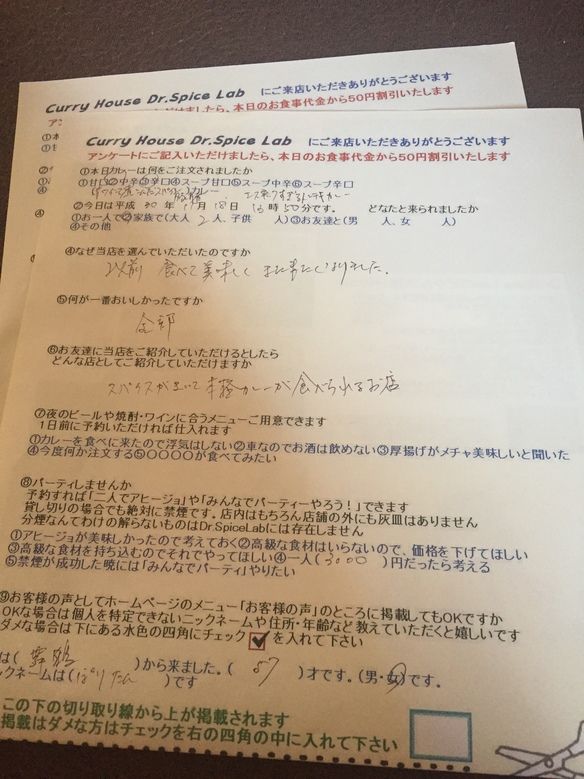 Curry House Dr.Spice Lab にご来店いただきありがとうございます
Curry House Dr.Spice Lab にご来店いただきありがとうございます
アンケートにご記入いただけましたら、本日のお食事代金から50円割引いたします
①本日カレーは何をご注文されましたか
①甘口②中辛③辛口④スープ甘口⑤スープ中辛⑥スープ辛口
カレー
②今日は平成 30 年 月 18日 時50分です。 どなたと来られましたか
①お一人で②ご家族で(大人 2人、子供 人)③お友達と(男 人、女 人)
④その他
④なぜ当店を選んでいただいたのですか
以前 食べて美味しく また来たくなりました。
⑤何が一番おいしかったですか
全部
⑥お友達に当店をご紹介していただけるとしたら
どんな店としてご紹介していただけますか
スパイスが 本格カレーが食べられるお店
⑦夜のビールや焼酎・ワインに合うメニューご用意できます
1日前に予約いただければ仕入れます
①カレーを食べに来たので浮気はしない②車なのでお酒は飲めない③厚揚げがメチャ美味しいと聞いた
④今度何か注文する⑤〇〇〇〇が食べてみたい
⑧パーティしませんか
予約すれば「二人でアヒージョ」や「みんなでパーティーやろう!」できます
貸し切りの場合でも絶対に禁煙です。店内はもちろん店舗の外にも灰皿はありません
分煙なんてわけの解らないものはDr.SpiceLabには存在しません
①アヒージョが美味しかったので考えておく②高級な食材はいらないので、価格を下げてほしい
③高級な食材を持ち込むのでそれでやってほしい④一人(3000 )円だったら考える
⑤禁煙が成功した暁には「みんなでパーティ」やりたい
⑨お客様の声としてホームページのメニュー「お客様の声」のところに掲載してもOKですか
OKな場合は個人を特定できないニックネームや住所・年齢など教えていただくと嬉しいです
ダメな場合は下にある水色の四角にチェック を入れて下さい
は( 舞鶴 )から来ました。( 57 )才です。(男・女)です。
ックネームは(ぱりたん )です
この下の切り取り線から上が掲載されます
掲載はダメな方はチェックを右の四角の中に入れて下さい